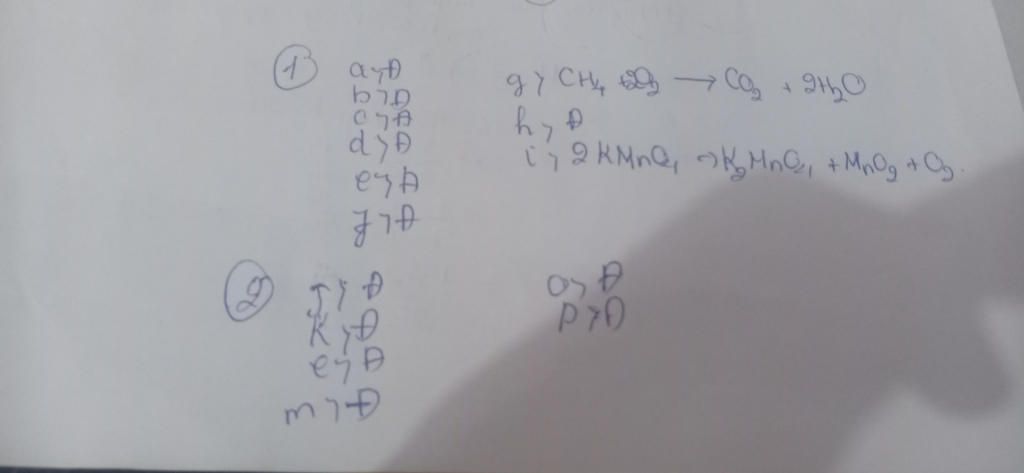 1
a, A
b, A
c, A
d, A
e, A
f, A
g, CH4 + 2O2 → CO2 + 2H2O
h, A
i, 2KMnO4 → K2MnO4 + MnO2 + O2.
2
j, A
K, A
e, A
m, A
o, A
p, A